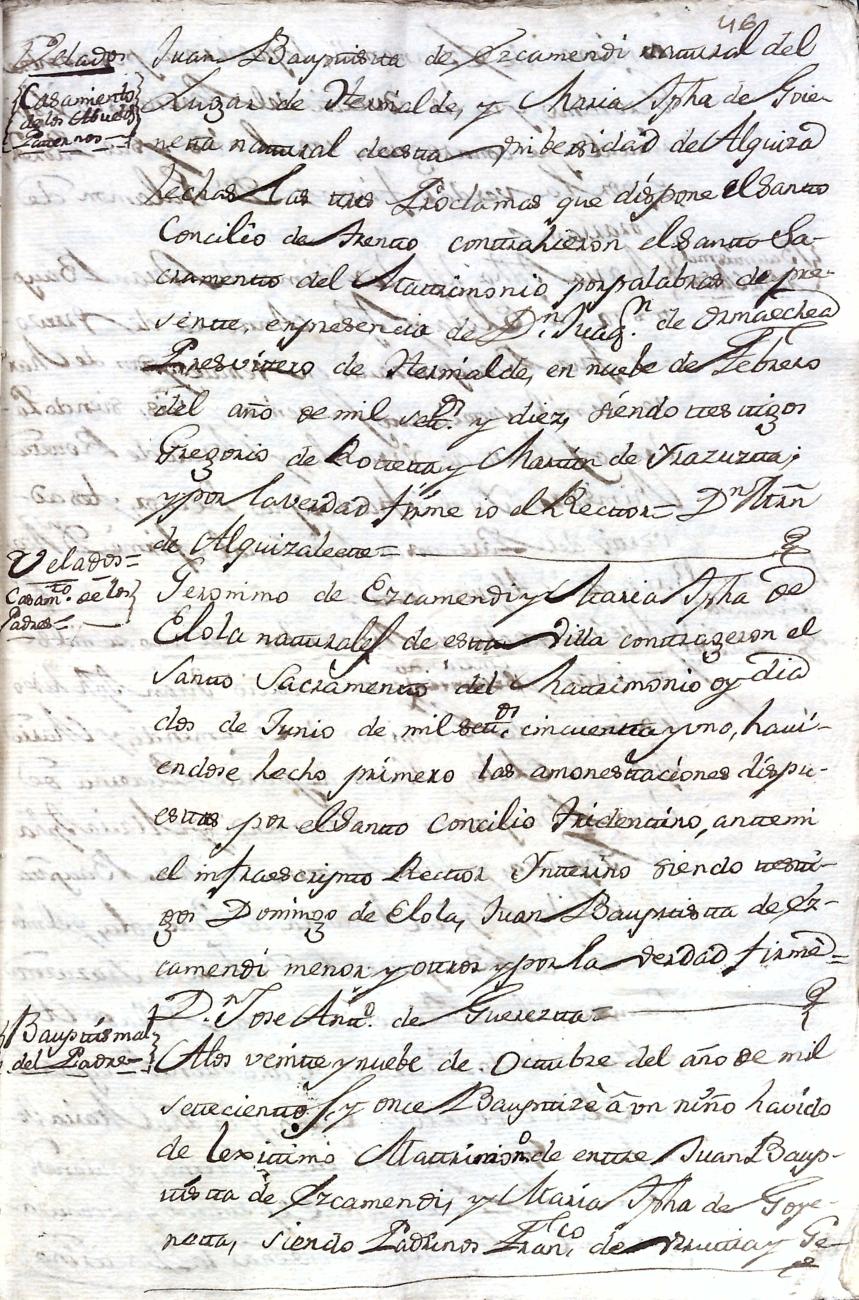 46
Velados
Casamiento
de los Abuelos
Paternos
Juan Bauptista de Ercamendi natural del
Lugar de Hernialde, y Maria Jpha de Goie-
neta natural de esta Vnibersidad de Alquiza
hechas las tres Proclamas que dispone el Santo
Concilio de Trento contrahieron el Santo Sa-
cramento del Matrimonio por palabras de pre-
sente, en presencia de Dn. Juaqn. de Ormaechea
Presvitero de Hernialde, en nuebe de Febrero
del año de mil setos. y diez, siendo testigos
Gregorio de Rotteta y Martin de Yrazuzta;
y por la verdad firme io el Rector = Dn. Frn
de Alquizalete =
Velados =
Casamto. de los
Padres =
Geronimo de Ercamendi y Maria Jpha de
Elola naturales de esta Villa contrageron el
Santo Sacramento del Matrimonio oy dia
dos de Junio de mil setos. cincuenta y vno, havi-
endose hecho primero las amonestaciones dispu-
estas por el Santo Concilio Tridentino, ante mi
el infraescripto Rector Ynterino siendo testi-
gos Domingo de Elola, Juan Bauptista de Er-
camendi menor y otros y por la verdad firmè =
Dn. Jose Anto. de Guerezta =
Bauptismal
del Padre =
A los veinte y nuebe de Octubre del año de mil
setecientos, y once Bauptizè â vn niño havido
de lexitimo Matrimono. de entre Juan Baup-
tista de Ercamendi, y Maria Jpha de Goye-
neta, siendo Padrinos Franco. de Vrrutia y Ge-